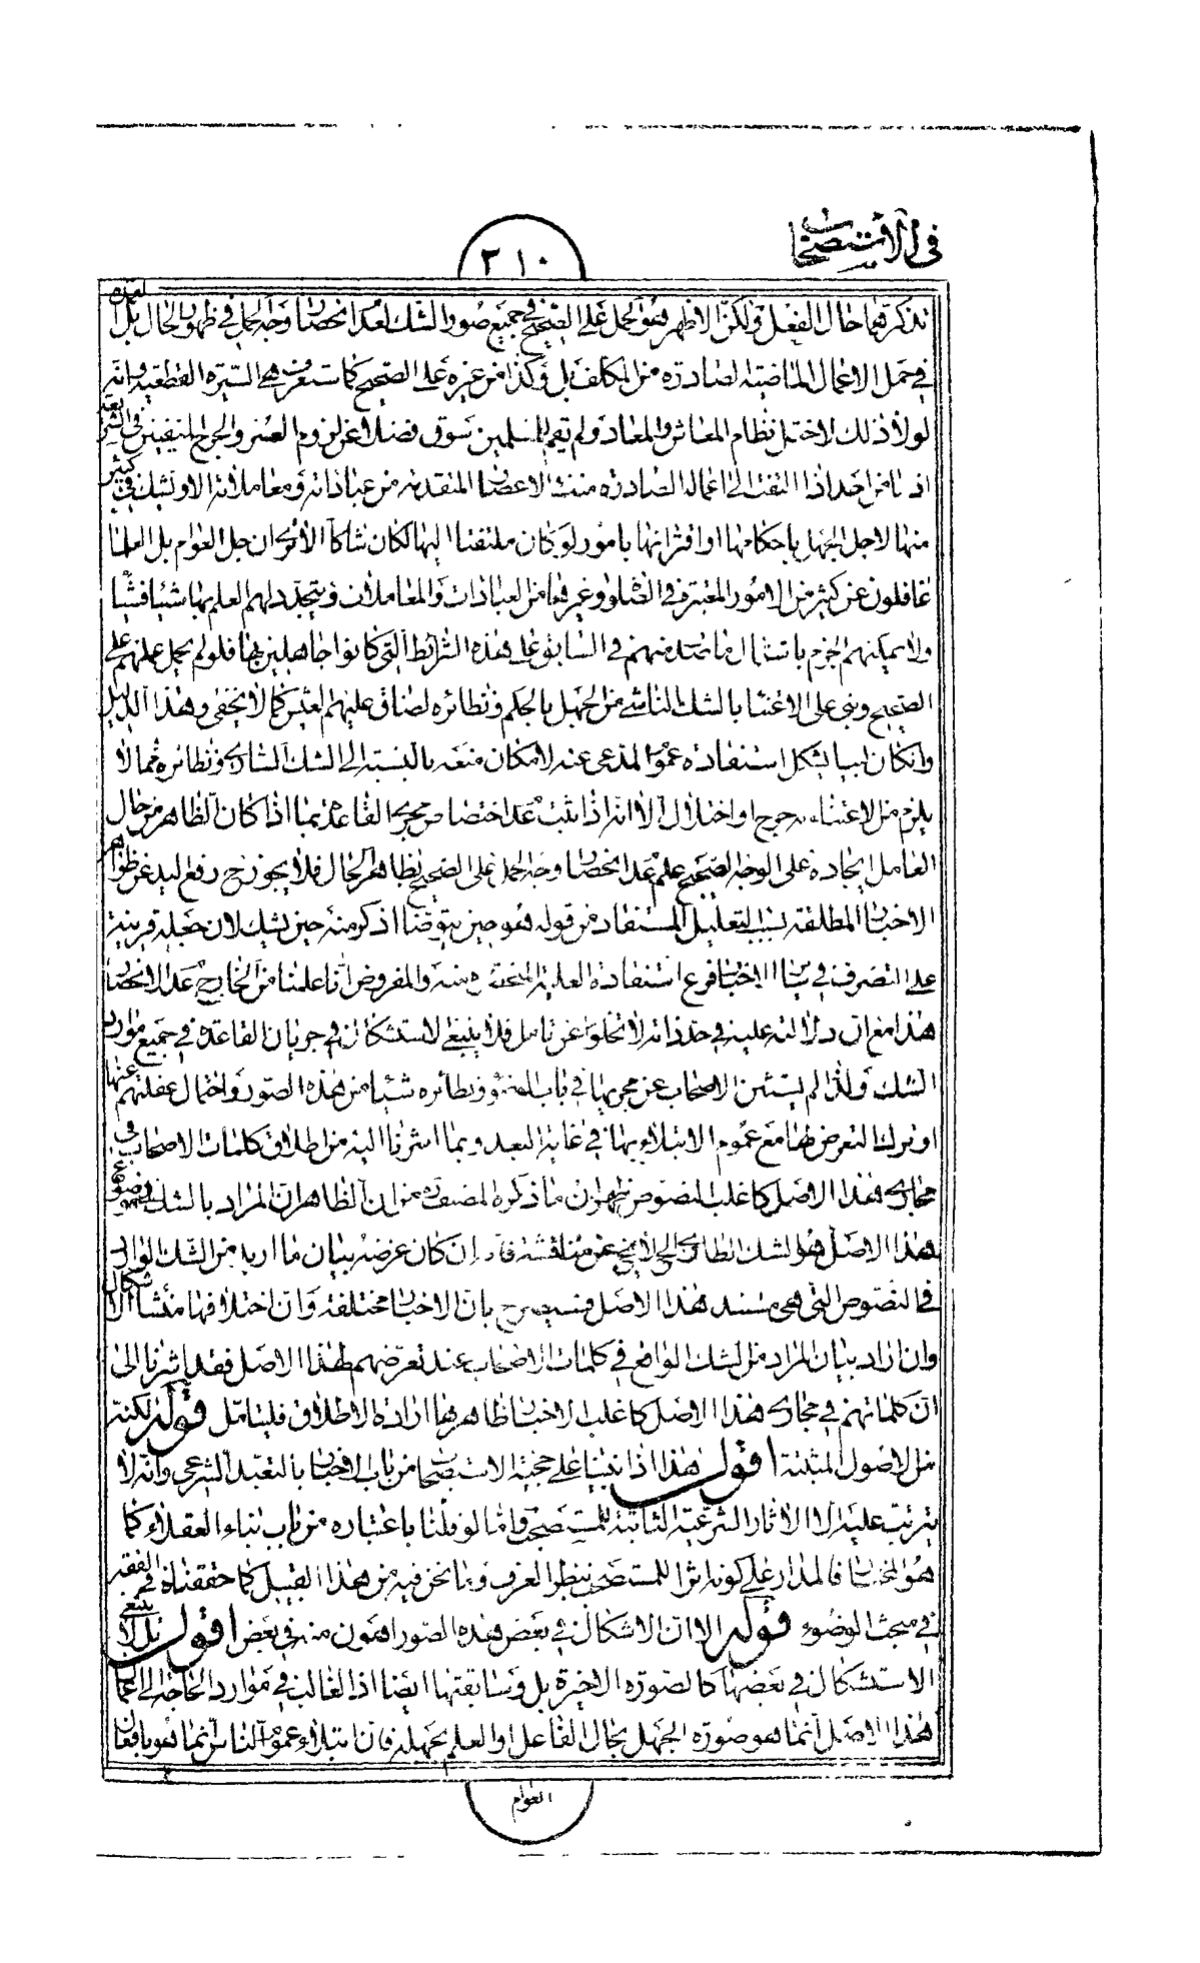 في الاستصحاب
٣١٠
تذكرتهما حال الفعل ولكن الاظهر هو الحمل على الصحيح في جميع صور الشك لعدم انحصار وجه الحمل في ظهور الحال بل لعمدة
في حمل الاعمال الماضية الصادرة من المكلف بل وكذا من غيره على الصحيح كما ستعرف هي السيرة القطعية وانه
لولا ذلك لاختل نظام المعاش والمعاد ولم يقم للمسلمين سوق فضلا عن لزوم العسر والحرج المنفيين في الشريعة
اذ ما من احد اذا التفت الى اعماله الصادرة منه في الاعصار المتقدمة من عباداته ومعاملاته الا ويشك في كثير
منها لاجل الجهل باحكامها او اقترانها بامور لو كان ملتفتا اليها لكان شاكا الا ترى ان جل العوام بل العلماء
غافلون عن كثير من الامور المعتبرة في الصلوة وغيرها من العبادات والمعاملات ويتجدد لهم العلم بها شيئا فشيئا
ولا يمكنهم الجزم باشتمال ما صدر منهم في السابق على هذه الشرائط التي كانوا جاهلين بها فلو لم يحمل عملهم على
الصحيح وبنى على الاعتناء بالشك الناشي من الجهل بالحكم ونظائره لضاق عليهم العيش كما لا يخفى وهذا الدليل
وان كان لبيا يشكل استفادة عموم المدعى عنه لامكان منعه بالنسبة الى الشك الساري ونظائره مما لا
يلزم من الاعتناء به حرج او اختلال الا انه اذا ثبت عدم اختصاص مجرى القاعدة بما اذا كان الظاهر من حال
العامل ايجاده على الوجه الصحيح علم عدم انحصار وجه الحمل على الصحيح بظاهر الحال فلا يجوز ح رفع اليد عن ظواهر
الاخبار المطلقة بسبب التعليل المستفاد من قوله هو حين يتوضأ اذكر منه حين يشك لان جعله قرينة
على التصرف في سائر الاخبار فرع استفادة العلية المنحصرة منه والمفروض انا علمنا من الخارج عدم الانحصار
هذا مع ان دلالته عليه في حد ذاته لا تخلو عن تأمل فلا ينبغي الاستشكال في جريان القاعدة في جميع موارد
الشك ولذا لم يستثن الاصحاب عن مجريها في باب الوضوء ونظائره شيئا من هذه الصور واحتمال غفلتهم عنها
او ترك التعرض لها مع عموم الابتلاء بها في غاية البعد وبما اشرنا اليه من اطلاق كلمات الاصحاب في
مجاري هذا الاصل كاغلب النصوص ظهر ان ما ذكره المصنف ره من ان الظاهر ان المراد بالشك في موضوع
هذا الاصل هو الشك الطاري الخ لا يخ عن مناقشة فانه ان كان غرضه بيان ما اريد من الشك الوارد
في النصوص التي هي مستند هذا الاصل فسيصرح بان الاخبار مختلفة وان اختلافها منشأ الاشكال
وان اراد بيان المراد من الشك الواقع في كلمات الاصحاب عند تعرضهم لهذا الاصل فقد اشرنا الى
ان كلماتهم في مجاري هذا الاصل كاغلب الاخبار ظاهرها ارادة الاطلاق فليتأمل قوله لكنه
من الاصول المثبتة اقول هذا اذا بنينا على حجية الاستصحاب من باب الاخبار بالتعبد الشرعي وانه لا
يترتب عليه الا الاثار الشرعية الثابتة للمستصحب واما لو قلنا باعتباره من باب بناء العقلاء كما
هو المختار فالمدار على كونه اثرا للمستصحب بنظر العرف وما نحن فيه من هذا القبيل كما حققناه في الفقه
في مبحث الوضوء قوله الا ان الاشكال في بعض هذه الصور اهون منه في بعض اقول بل لا ينبغي
الاستشكال في بعضها كالصورة الاخيرة بل وسابقتها ايضا اذ الغالب في موارد الحاجة الى اعمال
هذا الاصل انما هو صورة الجهل بحال الفاعل او العلم بجهله فان ابتلاء عموم الناس انما هو بافعال
العوام